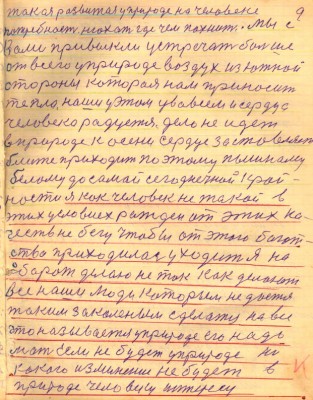 9
такая развитая у природе на человеке
потребность, нюхат где чем пахнит. Мы с
Вами привыкли устречать больше
от всего у природе воздух из южной
стороны которая нам приносит
тепло, наши у этом убавлен и сердце
человека радуется, дело не идет
в природе к осени сердце заставляет
ближе приходит по этому
белому до самой сегоднечной край-
ности я как человек не такой в
этих условиех рожден от этих ка-
честв не бегу чтобы от этого богат-
ства приходилась уходить я на-
оборот делаю не так как делают
все наши люди которым не дается
таким закаленым сделату на все
это называется у природе его надо
мат если не будет у природе ни
какого изминение не будет в
природе человеку